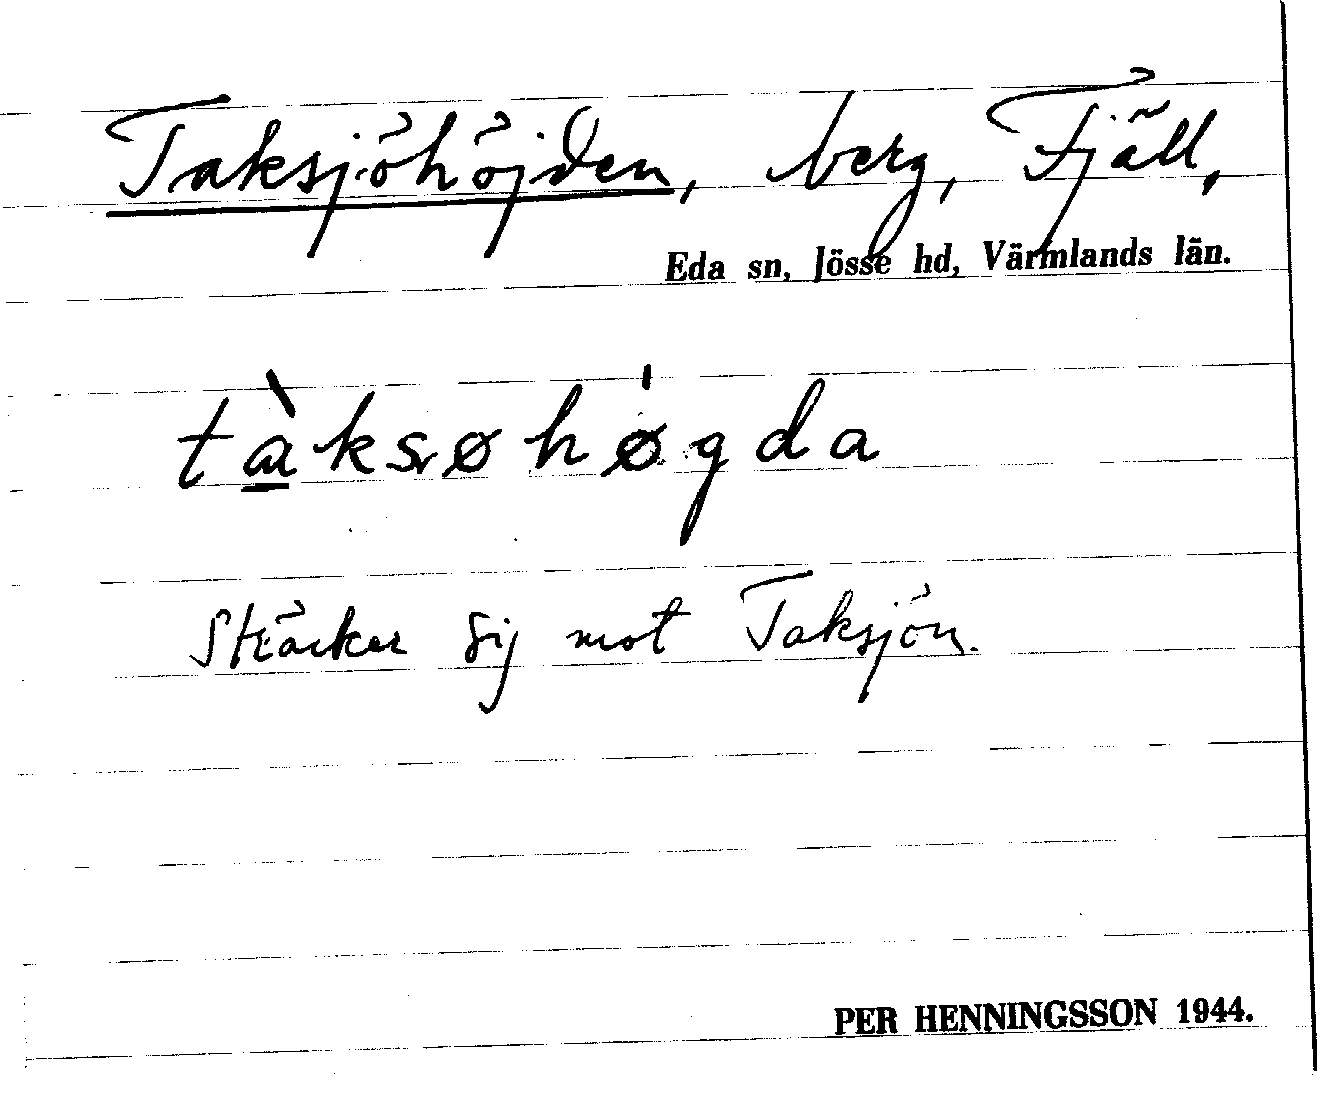 Taksjöhöjden, berg, Fjäll,
Eda sn, Jösse hd, Värmlands län.
tàksøhøgda
Sträcker sig mot Taksjön.
PER HENNINGSSON 1944.